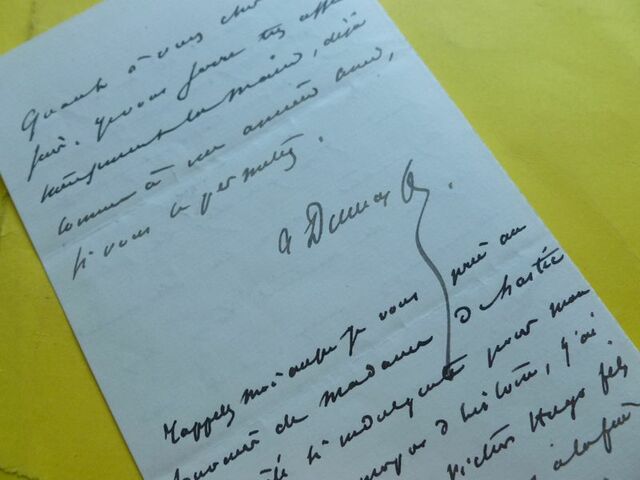 Quant à vous cher
père. je vous serre très affec
tueusement la main, déjà
comme à un ancien ami,
si vous le permettez.
A Dumas f.
Rappelez moi aussi je vous prie au
souvenir de madame
si indulgente pour mon
d'histoire, j'ai
Victor Hugo fils
à la fin